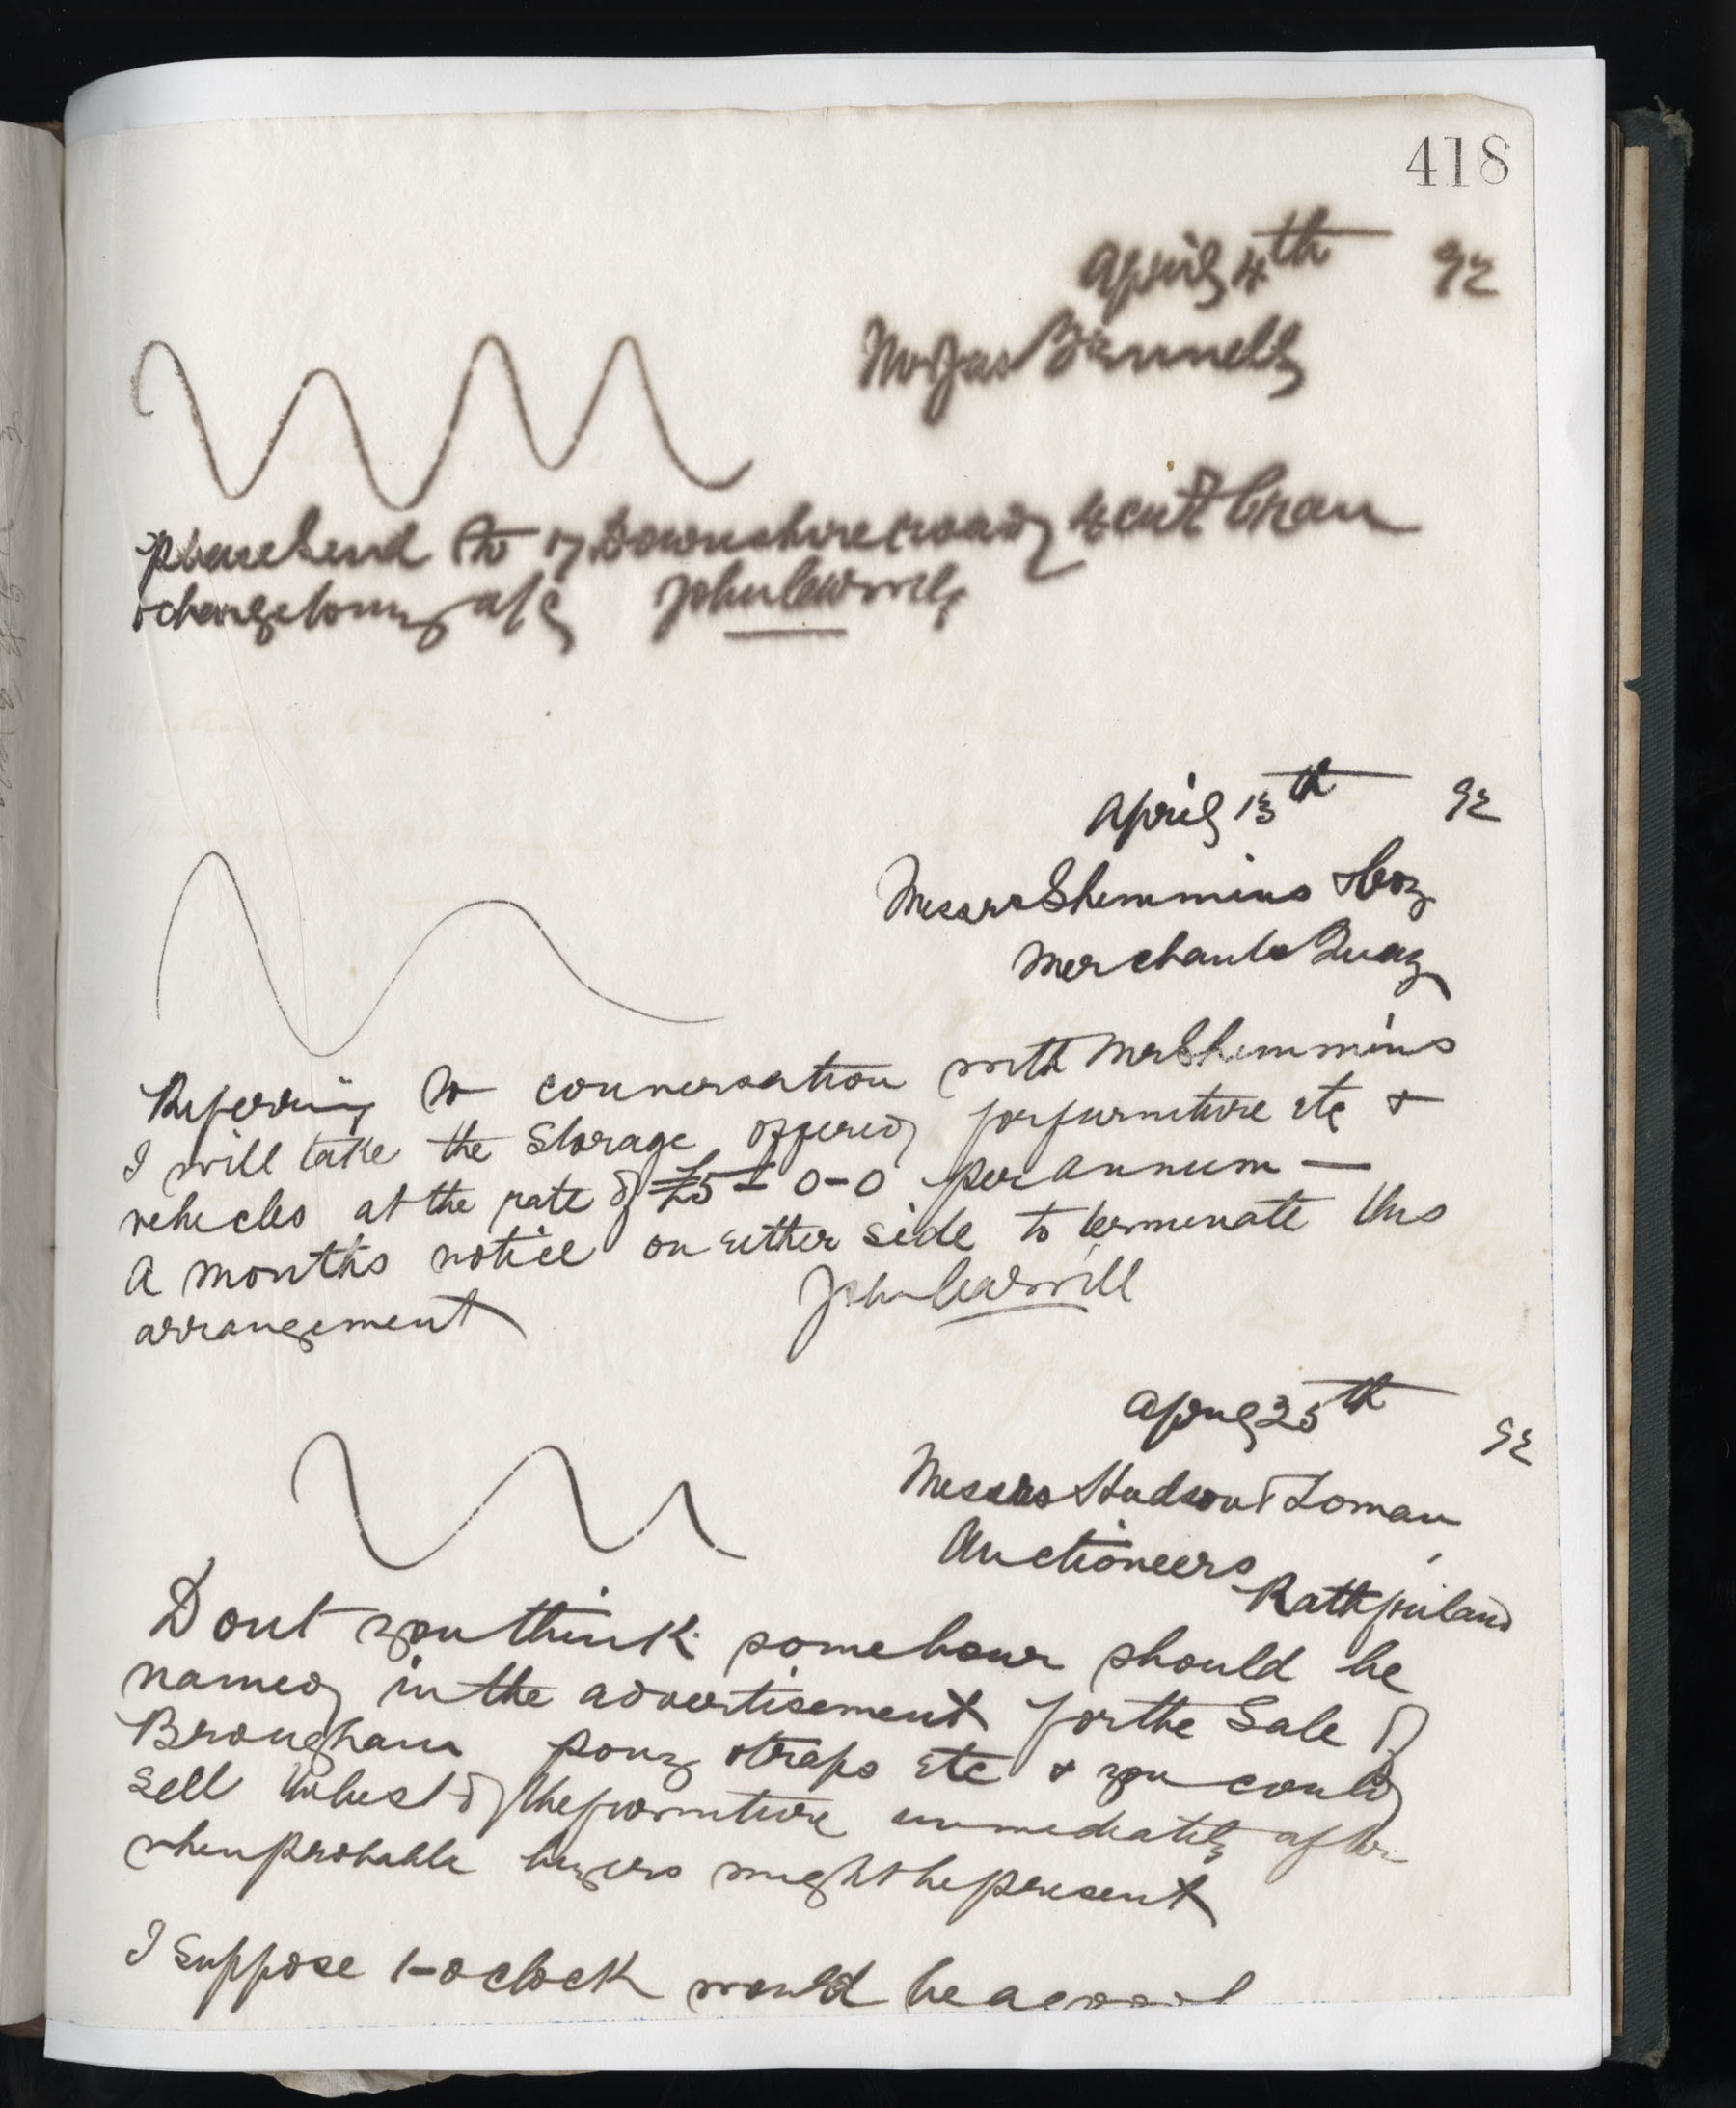 418
April 4th 92
Mr Jas Fennell
please send to 17 Downshire road 4 cwt bran
& charge to my a/c John
April 13th 92
Messrs Shemmins & Coy
Merchants Quay
Referring to conversation with Mr Shemmins
I will take the storage offered for furniture etc &
vehicles at the rate of £5-0-0 per annum —
A months notice on either side to terminate this
arrangement John
April 25th 92
Messrs Hudson & Loman
Auctioneers
Rathfriland
Dont you think some hour should be
named in the advertisement for the Sale of
Brougham pony traps etc & you could
sell the best of the furniture immediately after
when probable buyers might be present
I suppose 1-oclock would be a good